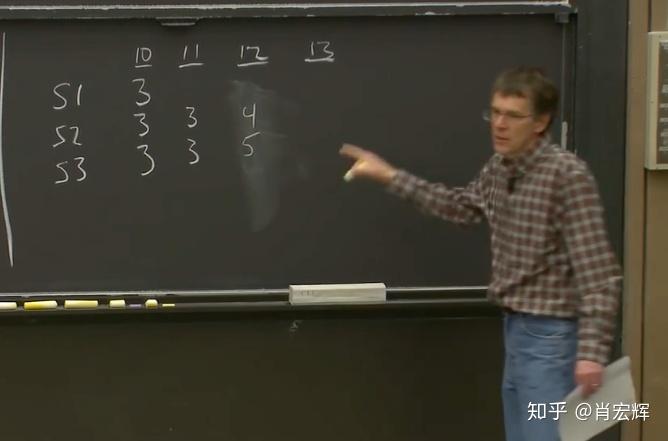 10 11 12 13
S1 3
S2 3 3 4
S3 3 3 5
知乎 @肖宏辉